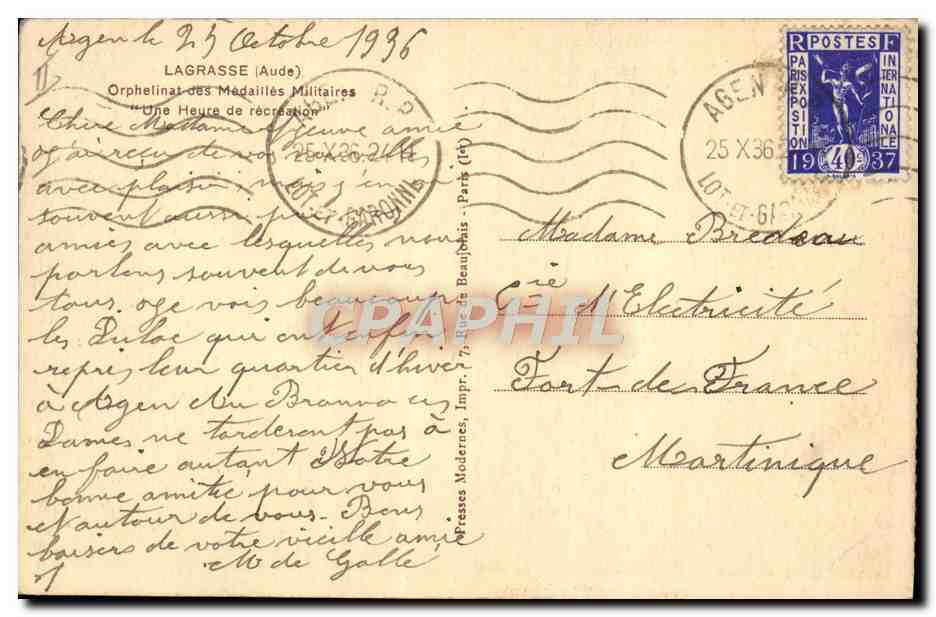 Agen le 25 Octobre 1936
LAGRASSE (Aude)
Orphelinat des Médaillés Militaires
"Une Heure de récréation"
Chère Madame jeune amie
j'ai reçu de vos nouvelles
avec plaisir, mais j'en ai
souvent aussi par
amies avec lesquelles nous
parlons souvent de vous
tous. Je vois beaucoup
les Dulac qui ont enfin
repris leur quartier d'hiver
à Agen
Dames ne tarderont pas à
en faire autant Notre
bonne amitié pour vous
et autour de vous. Bons
baisers de votre vieille amie
M de Gallé
AGEN R.P.
25 X 36 21 H
LOT-ET-GARONNE
Presses Modernes, Impr. - 7, Rue de Beaujolais - Paris (Ier)
AGEN
25 X 36
LOT-ET-GARONNE
RF POSTES
PARIS EXPOSITION
INTERNATIONALE
1937
40c
Madame Bredeau
Cie d'Electricité
Fort-de-France
Martinique
CPAPHIL